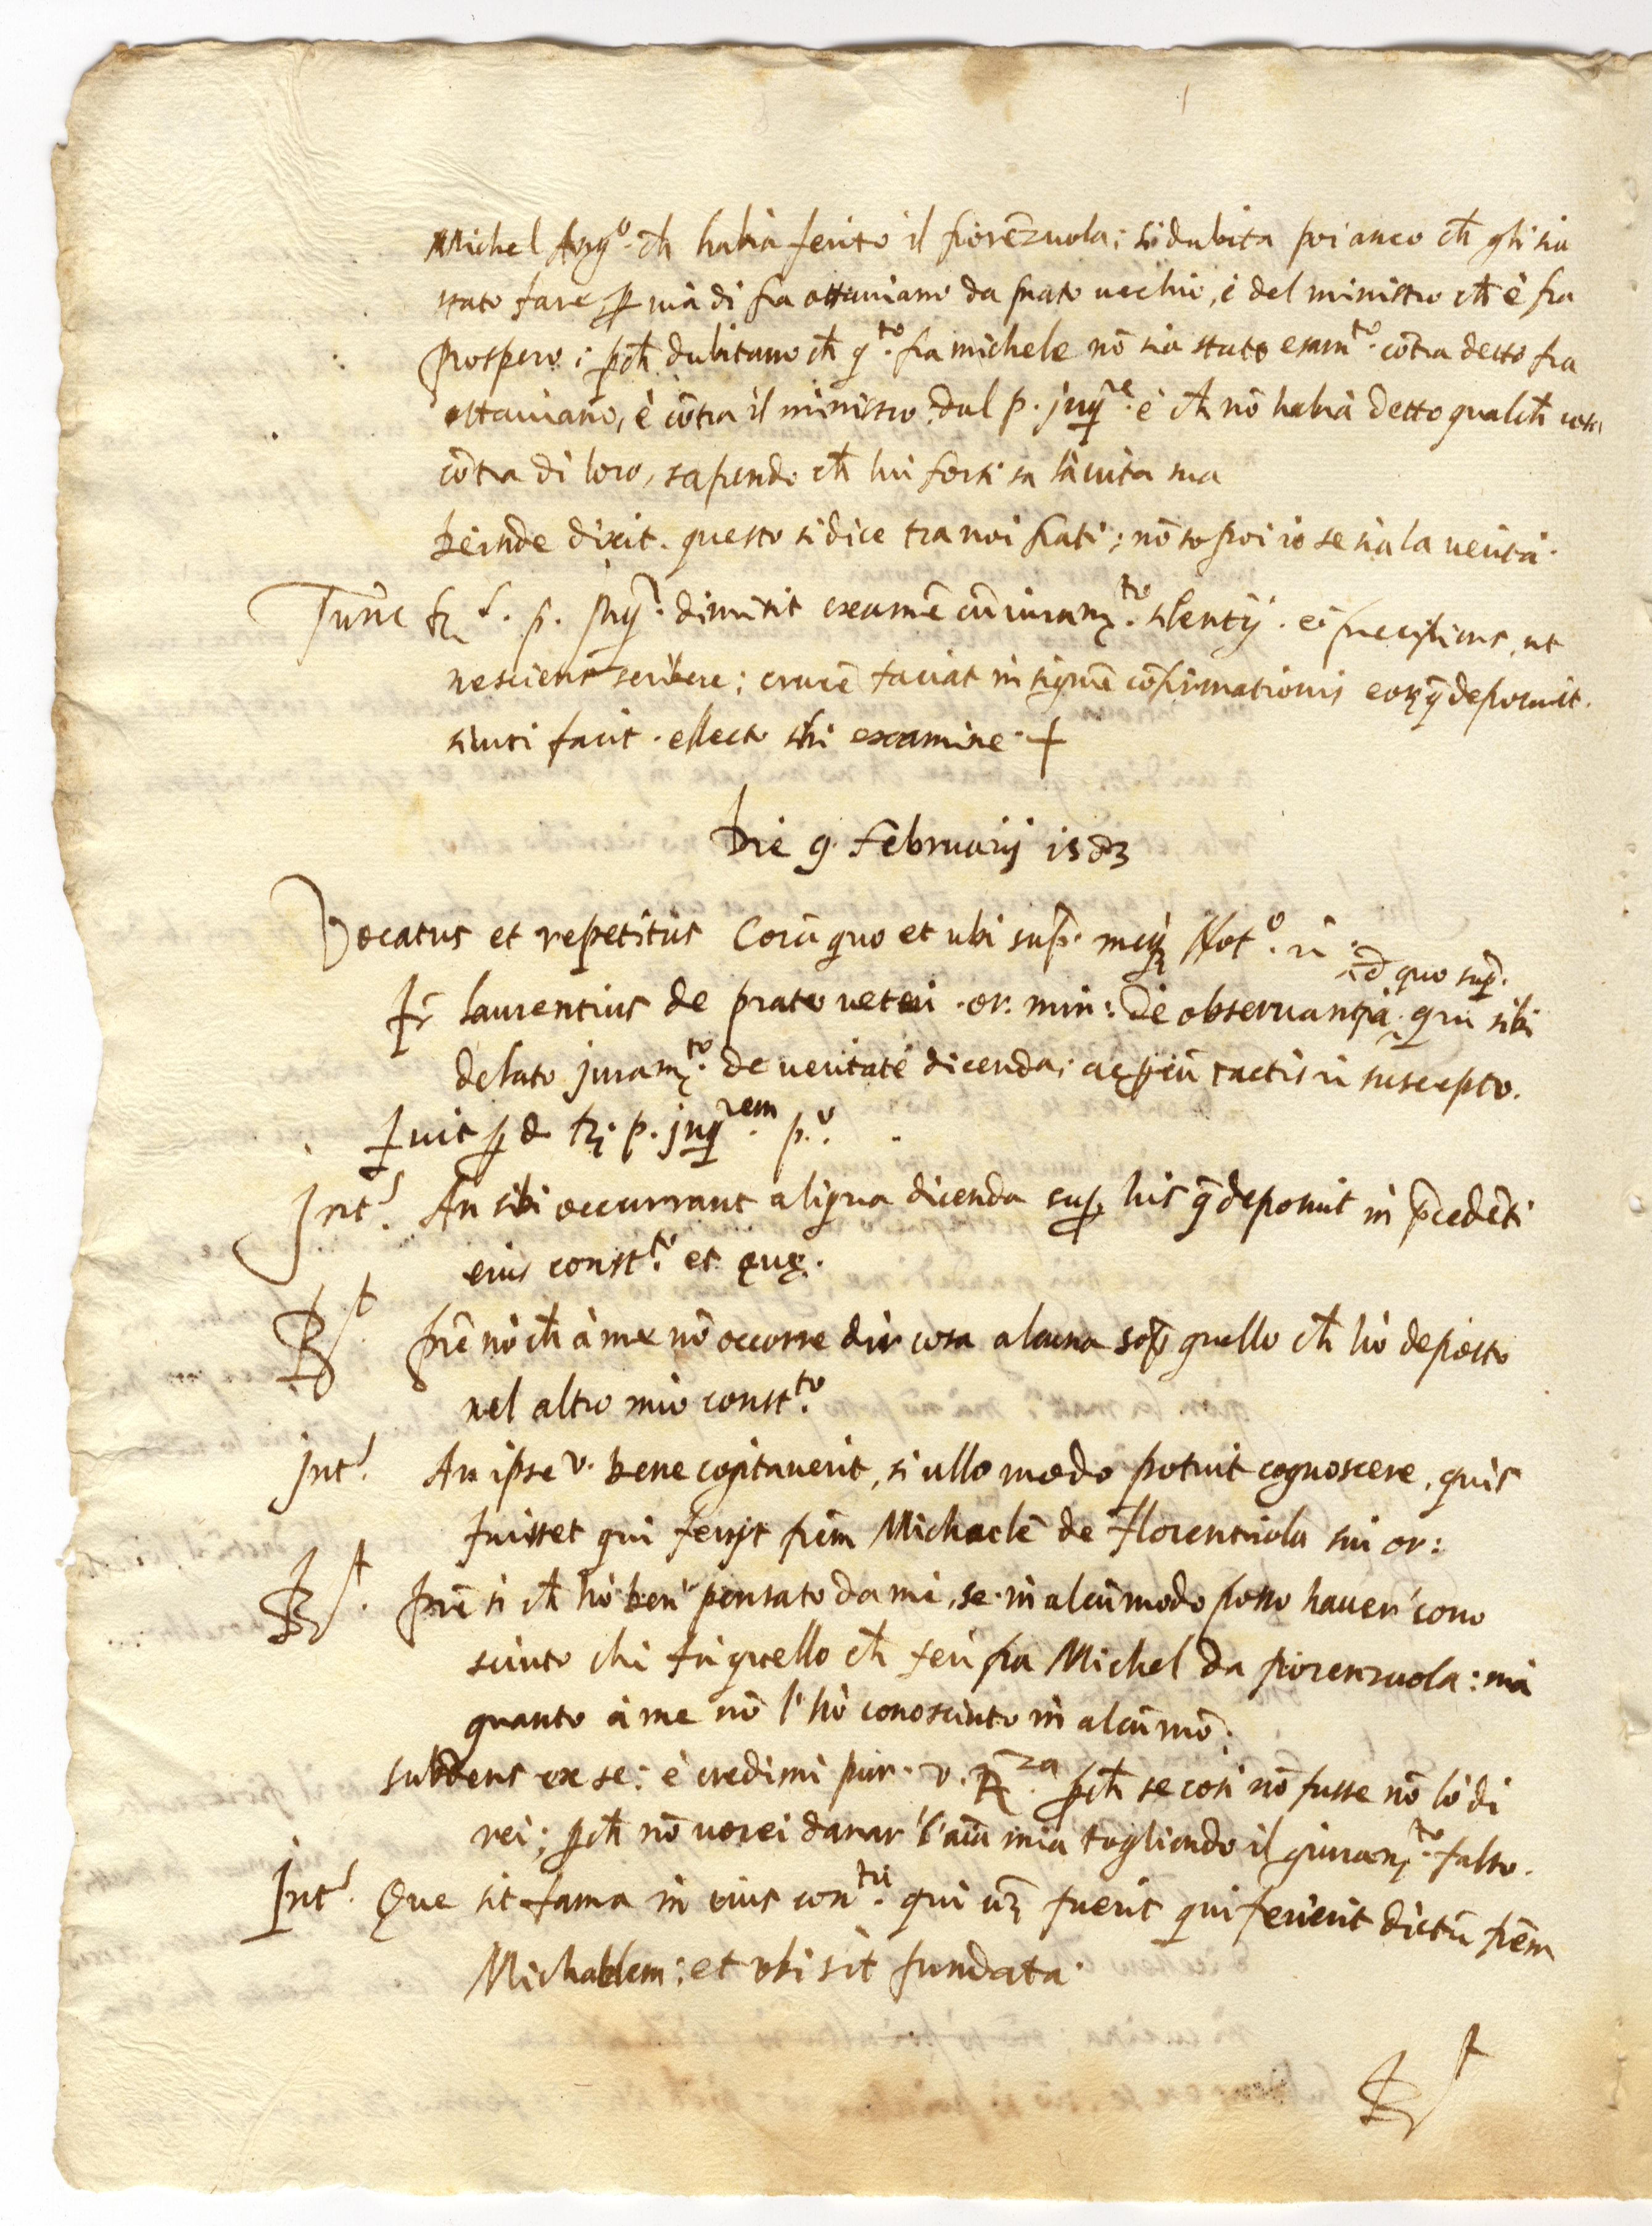 Michel Ang.º ch̄ habia ferito il fiorēzuola; si dubita poi anco ch̄ gli sia
stato fare ꝑ uia di fra ottauiano da prato uechio, è del ministro ch̄ è fra
Prospero; ꝑch̄ dubitano ch̄ q.to fra michele nō sia stato exam.to cōtra detto fra
ottauiano, è cōtra il ministro dal p. jnq.re è ch̄ nō habia detto qualch̄ cosa
cōtra di loro, sapendo ch̄ lui forsi sa la uita sua
Deinde dixit. questo si dice tra noi frati; nō so poi io se sia la uerità.
Tunc p. jnq.r dimisit examē cū iuram.to silentij. ei precipiens, ut
nesciens scribere; crucē faciat in signū cōfirmationis eorū q̄ deposuit.
sicuti facit. examine. +
Die 9 Februarij 1583
Vocatus et repetitus Corā quo et ubi supr. meiq̄ Not.º
de quo supr.
Fr̄ laurentius de prato ueteri .or. min: De obseruantia qui sibi
delato juram.to de ueritate dicenda; ac tactis suscepto.
Fuit ꝑ d. p. jnq.rem
Jnt.s An sibi occurrant aliqua dicenda supr his q̄ deposuit in p̄cedēti
eius const.to et quę.
Rt. P̄rē nō ch̄ à me nō occorre dir cosa alcuna sopr quello ch̄ hò deposto
nel altro mio const.to
jnt.s An ipse v. bene cogitauerit, si ullo modo potuit cognoscere, quis
fuisset qui ferijt frēm Michaelē de Florentiola sui or:
Rt. P̄rē si ch̄ hò ben pensato da mi, se in alcū modo posso hauer cono
sciuto chi fu quello ch̄ ferì fra Michel da fiorenzuola: mà
quanto à me nō l'hò conosciuto in alcū mō.
subdens ex se: è credimi pur. v. R.za ꝑch̄ se cosi nō fusse nō lo di
rei; ꝑch̄ nō uorei danar l'aīa mia togliendo il giuram.to falso.
Jnt.s Que sit fama in eius con.tu qui fuerit qui ferierit dictū frēm
Michaelem; et ubi sit fundata.
Rt